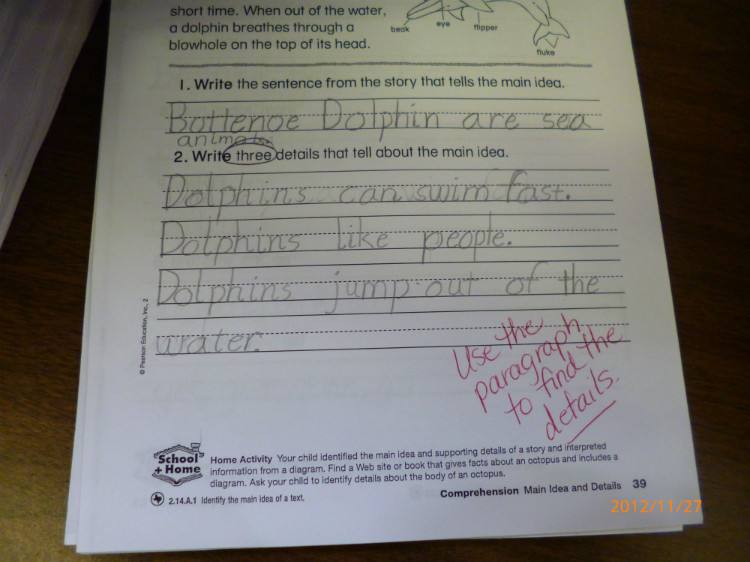 short time. When out of the water,
a dolphin breathes through a
blowhole on the top of its head.
beak
eye
flipper
fluke
1. Write the sentence from the story that tells the main idea.
Bottenoe Dolphin are sea
animals
2. Write three details that tell about the main idea.
Dolphins can swim fast.
Dolphins like people.
Dolphins jump out of the
water.
Use the
paragraph
to find the
details.
© Pearson Education, Inc., 2
School
+ Home
Home Activity Your child identified the main idea and supporting details of a story and interpreted
information from a diagram. Find a Web site or book that gives facts about an octopus and includes a
diagram. Ask your child to identify details about the body of an octopus.
2.14.A.1 Identify the main idea of a text.
Comprehension Main Idea and Details 39
2012/11/27